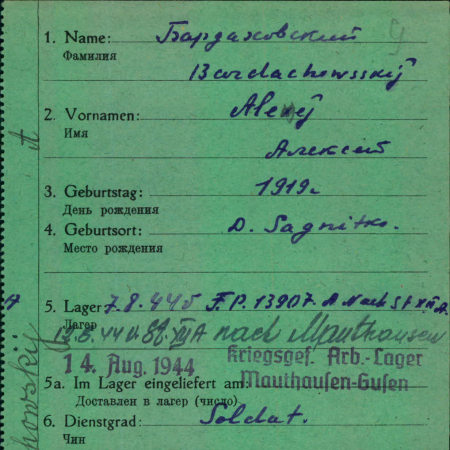 1. Name: Бардаховский
Фамилия
Bardachowsskij
2. Vornamen: Alexej
Имя
Алексей
3. Geburtstag: 1919г
День рождения
4. Geburtsort: D. Sagnitko.
Место рождения
5. Lager 7.8.44 F.P. 13907. A nach St XII A.
Лагер
nach Mauthausen
14. Aug. 1944 Kriegsgef. Arb.-Lager
Mauthausen-Gusen
5a. Im Lager eingeliefert am:
Доставлен в лагер (число)
6. Dienstgrad: Soldat.
Чин